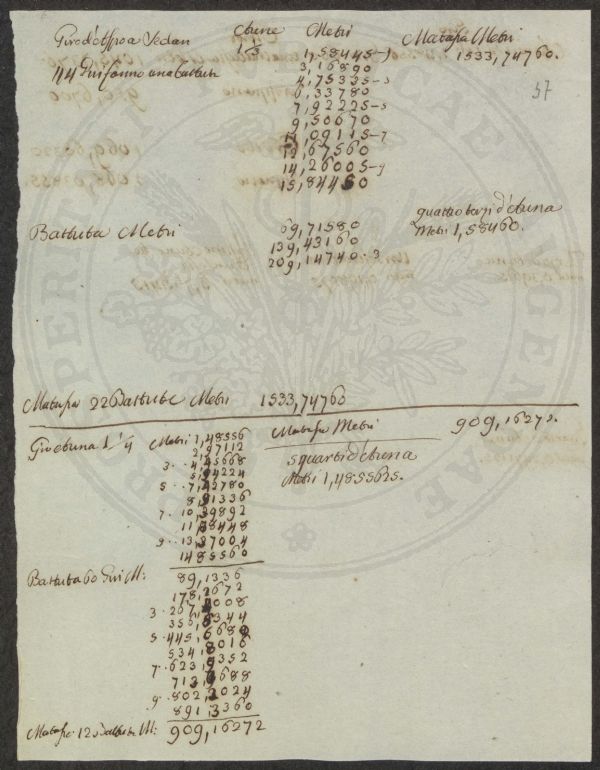 Giro d'Aspo a Sedan Aune Metri Matassa Metri
1 1/3 1,58445-1 1533,74760.
44 Giri fanno una battuta 3,16890
4,75335-3
6,33780
7,92225-5
9,50670
11,09115-7
12,67560
14,26005-9
15,84450
57
Battuta Metri 69,71580
139,43160
209,14740.3
quattro terzi d'auna
Metri 1,58460.
Matassa 22 Battute Metri 1533,74760
Giro auna 1 1/4 Metri 1,48556
2,97112
3.. 4,45668
5,94224
5.. 7,42780
8,91336
7. 10,39892
11,88448
9.. 13,37004
14,85560
Matassa Metri 909,16272.
5 quarti d'auna
Metri 1,4855625.
Battuta 60 Giri M: 89,1336
178,2672
3. 267,4008
356,5344
5. 445,6680
534,8016
7. 623,9352
713,0688
9. 802,2024
891,3360
Matassa 12 Battute M: 909,16272